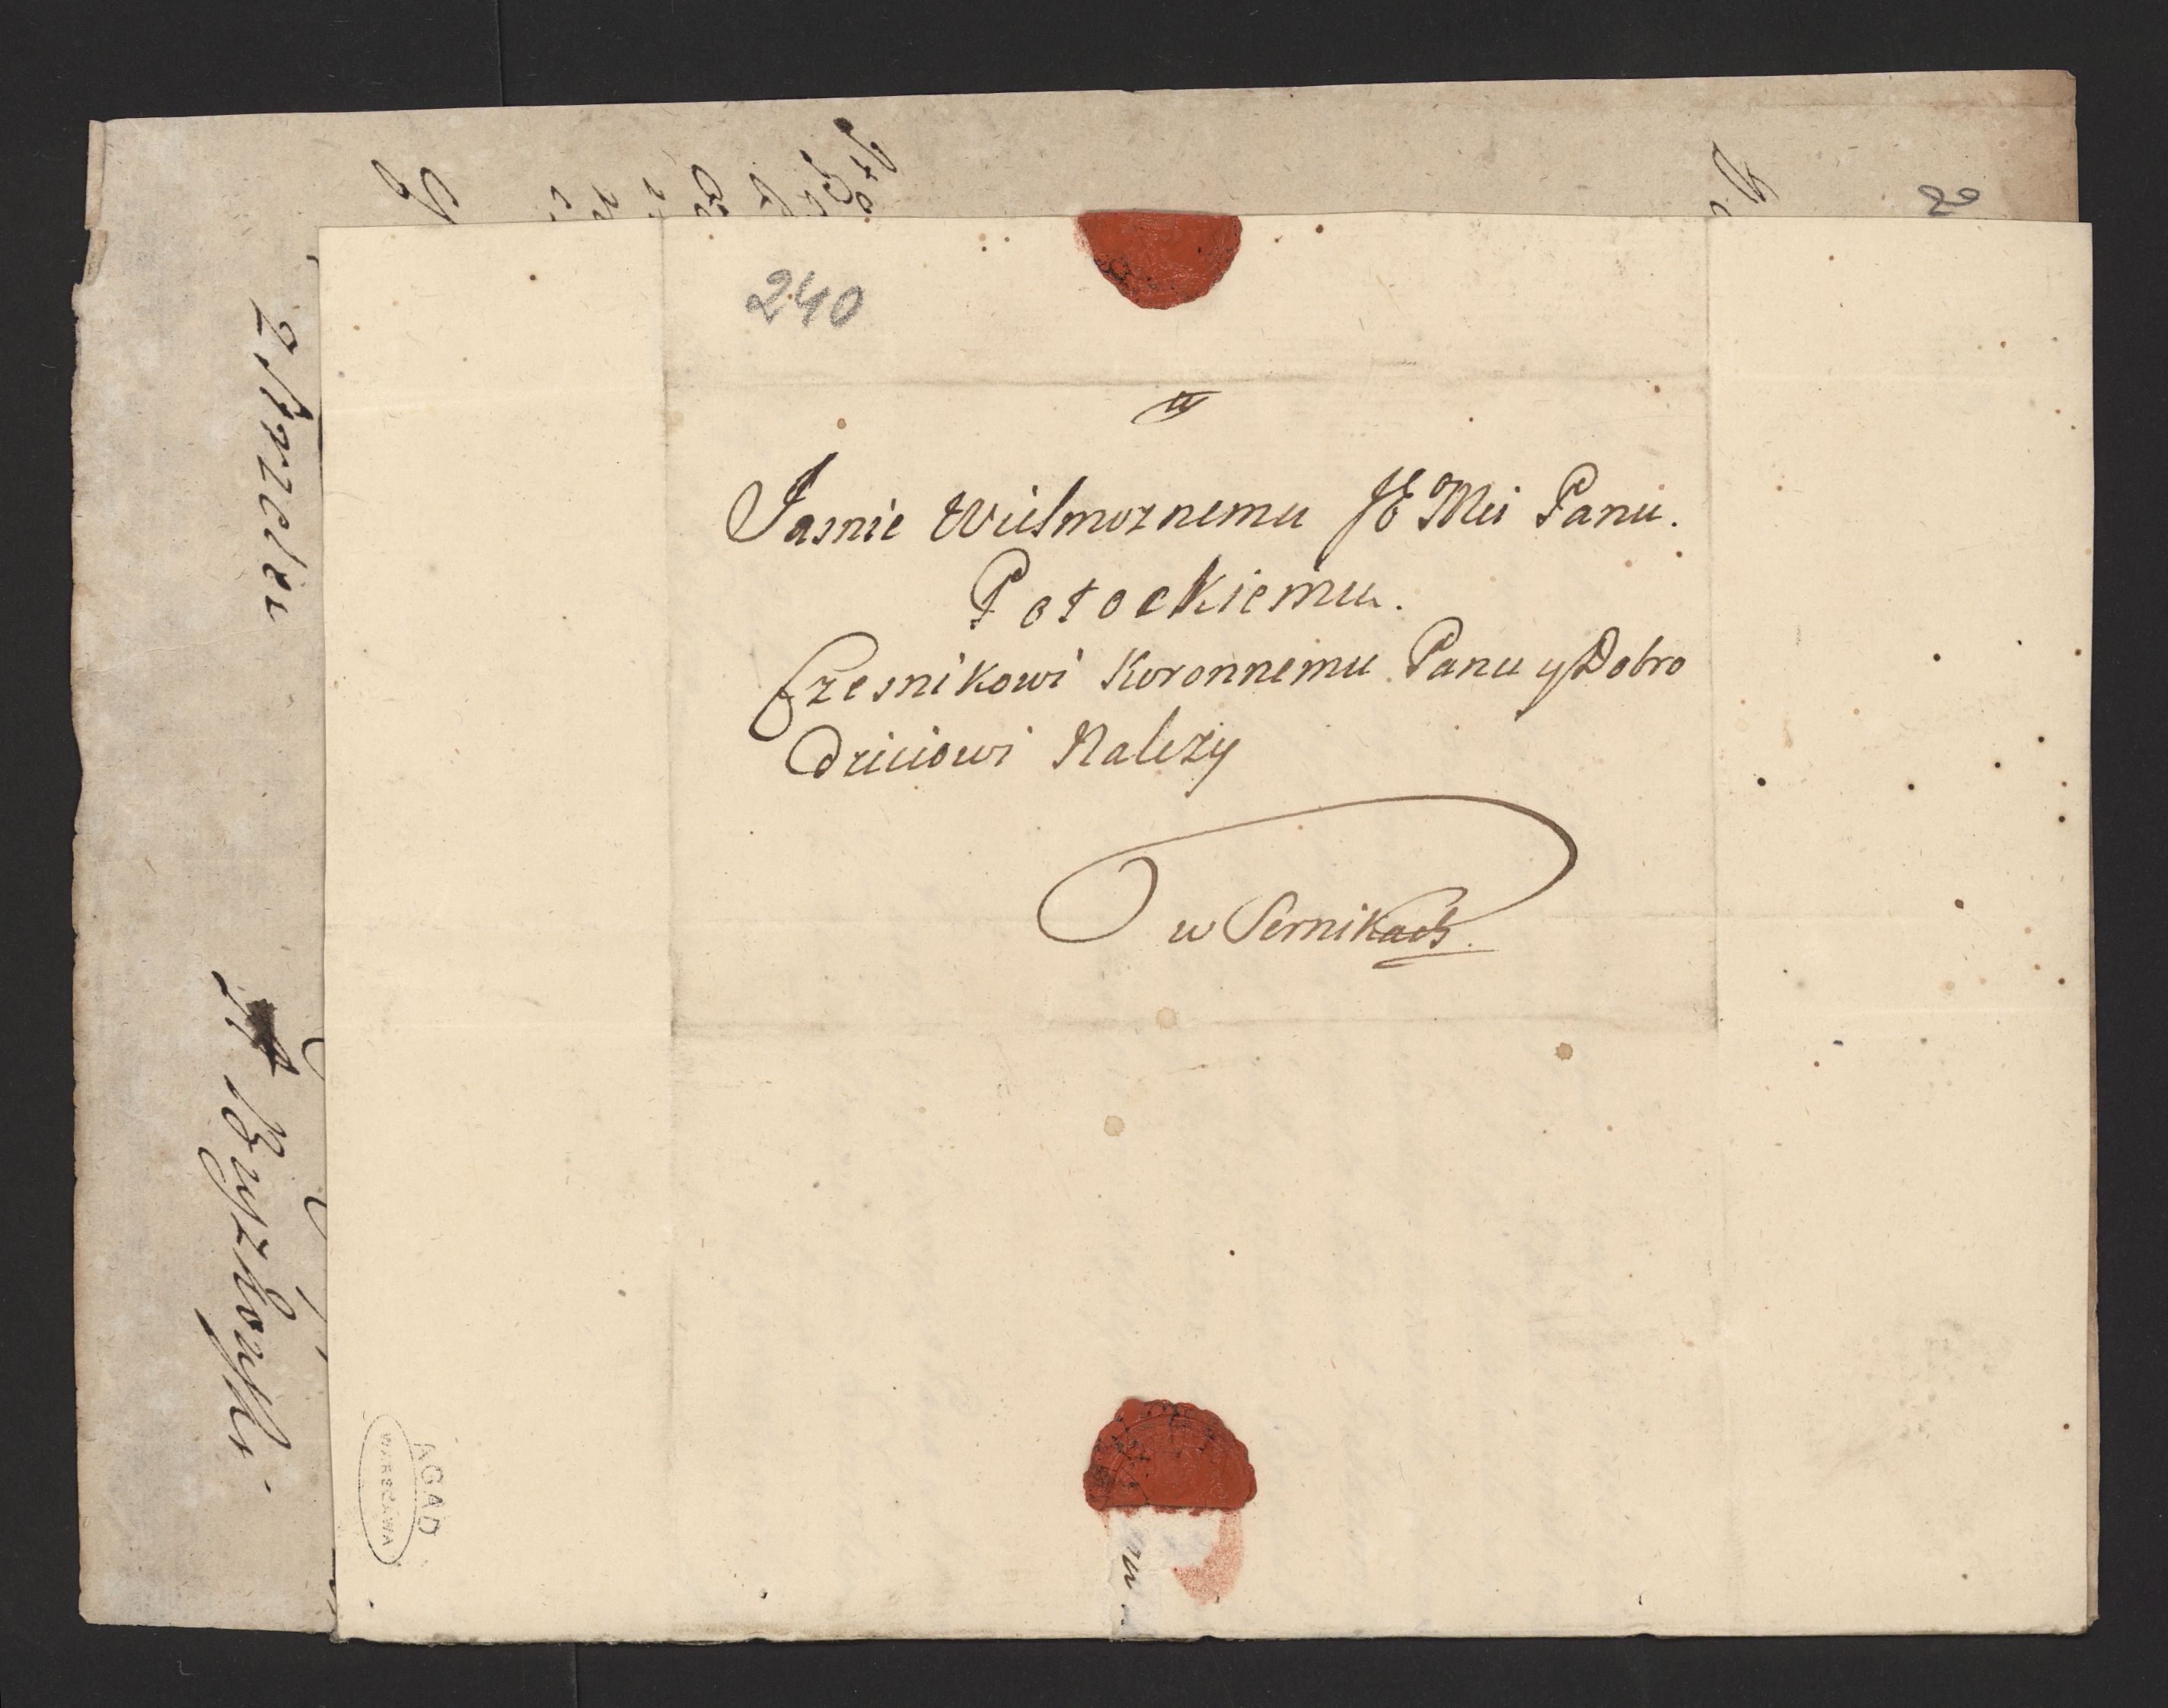 20
240
Jasnie Wielmoznemu JE Mci Panu.
Potockiemu.
Czesnikowi Koronnemu Panu y Dobro
dzieiowi Nalezy
w Sernikach.
AGAD
WARSZAWA